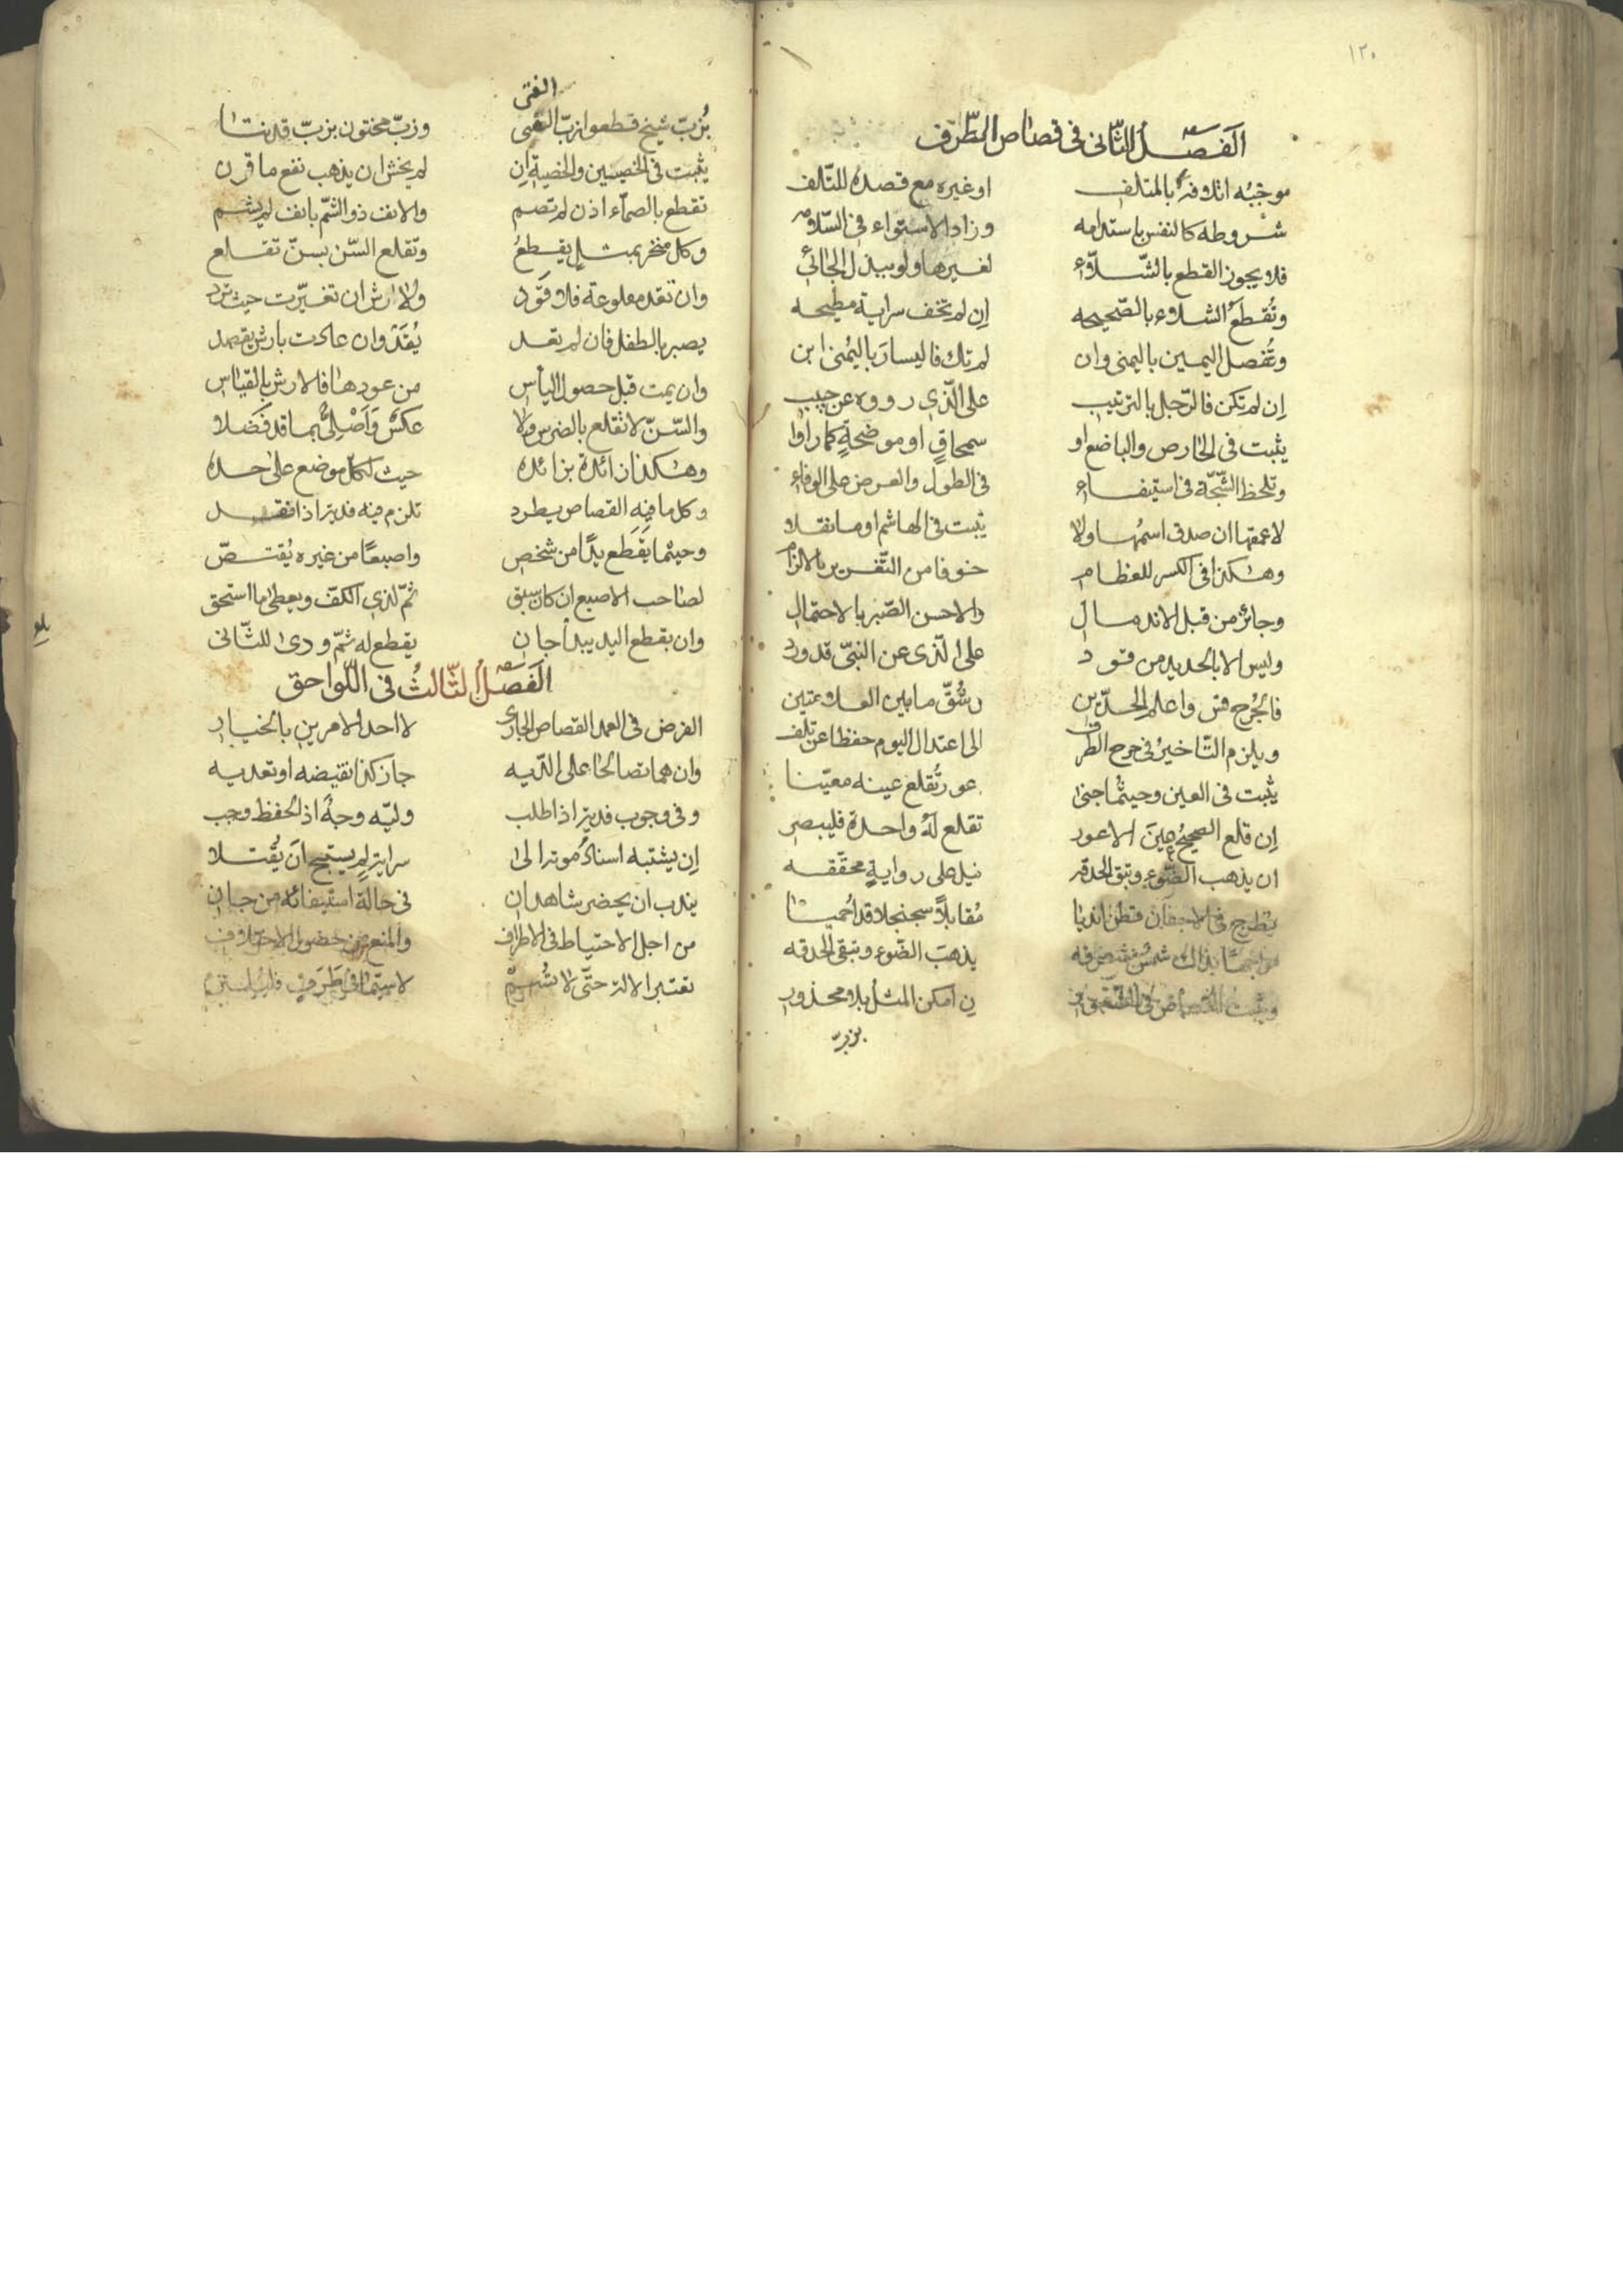 ١٢٠
الفصل الثاني في قصاص الطرف
موجبه اتلافه بالمتلف او غيره مع قصده للتلف
شروطه كالنفس باستدامه وزاد الاستواء في السلامه
فلا يجوز القطع بالشلاء لغيرها ولو ببذل الجاني
وتُقطَع الشلاء بالصحيحه إن لم تخف سراية مطيحه
وتُفصل اليمين باليمنى وان لم تك فاليسار باليُمنى ابن
إن لم تكن فالرّجل بالترتيب على الّذي رووه عن حبيب
يثبت في الحارص والباضع او سمحاقٍ او موضحةٍ كما راوا
وتلحظ الشّجّة في استيفاء في الطول والعرض على الوفاء
لا عمقها ان صدق اسمُها ولا يثبت في الهاشم او ما نقلا
وهكذا في الكسر للعظام خوفا من التّغرير بالالزام
وجائز من قبل الاندمال والاحسن الصّبر بالاحتمال
وليس الا بالحديد من قود على الّذي عن النبيّ قد ورد
فالجُرح قس واعلم الحدّين وشُقّ ما بين العلامتين
ويلزم التّاخيرُ في جرح الطرف الى اعتدال اليوم حفظا عن تلف
يثبت في العين وحيثُما جنى عور تُقلع عينه معيّنا
إن قلع الصحيحُ عينَ الاعور تقلع لهُ واحدة فليبصر
ان يذهب الضّوء وتبق الحدقه نيل على روايةٍ محقّقه
يطرح في الاجفان قطن انديا مُقابلاً سجنجلا قد اُحميا
يذهبَ الضّوء وتبقى الحدقه
ن امكن المثل بلا محذور
بزبّ
الفتى
بُزبّ شيخ قطعوا زبّ الفتى وزبّ مختون بزبّ قد نتا
يثبت في الخصيين والخصية إن لم يخش ان يذهب نفع ما قرن
تقطع بالصمّاء اذن لم تصم والانف ذو الشمّ بانف لم يشم
وكل منخر بمثلٍ يقطعُ وتقلع السّن بسنّ تقلع
وان تعد مقلوعة فلا قَوَد ولا ارش ان تغيّرت حيث ترد
يصبر بالطفل فان لم تعد يُقَد وان عادت بارش يقصد
وان يمت قبل حصول الياس من عودها فالارش بالقياس
والسّنّ لا تقلع بالضرس ولا عكسٌ وَاَصْليٌّ بما قد فَضَلا
وهكذا زائدة بزائده حيث لكل موضع على حده
وكل ما فيه القصاص يطرد تلزم فيه فدية اذا فقد
وحيثما يَقْطع يدًا من شخص واصبعًا من غيره يُقتصّ
لصاحب الاصبع ان كان سبق ثمّ لذي الكفّ ويعطى ما استحق
وان بقطع اليد يبدأ جان يقطع له ثمّ ودى للثّاني
الفصل الثالث في اللّواحق
الفرض في العمد القصاص الجاري لا احد الامرين بالخيار
وان هما تصالحا على الدّيه جاز كذا نقيضه او تعديه
وفي وجوب فدية اذا طلب وليّه وجهٌ اذ الحفظ وجب
إن يشتبه اسنادُ موته الى سراية لم يستبح انَ يُقتلا
يندب ان يحضر شاهدان في حالة استيفائه من جان
من اجل الاحتياط في الاطراف والمنع من حصول الاختلاف
تعتبر الالة حتّى لا تُسمّ لا سيّما في طَرَفٍ